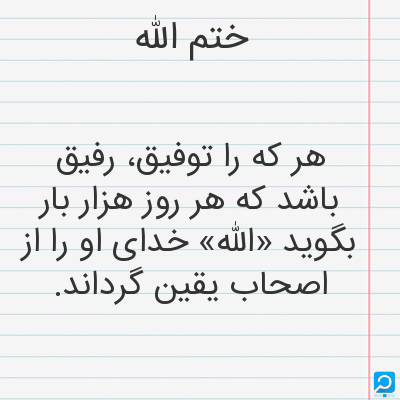 ختم الله
هر که را توفیق، رفیق
باشد که هر روز هزار بار
بگوید «الله» خدای او را از
اصحاب یقین گرداند.